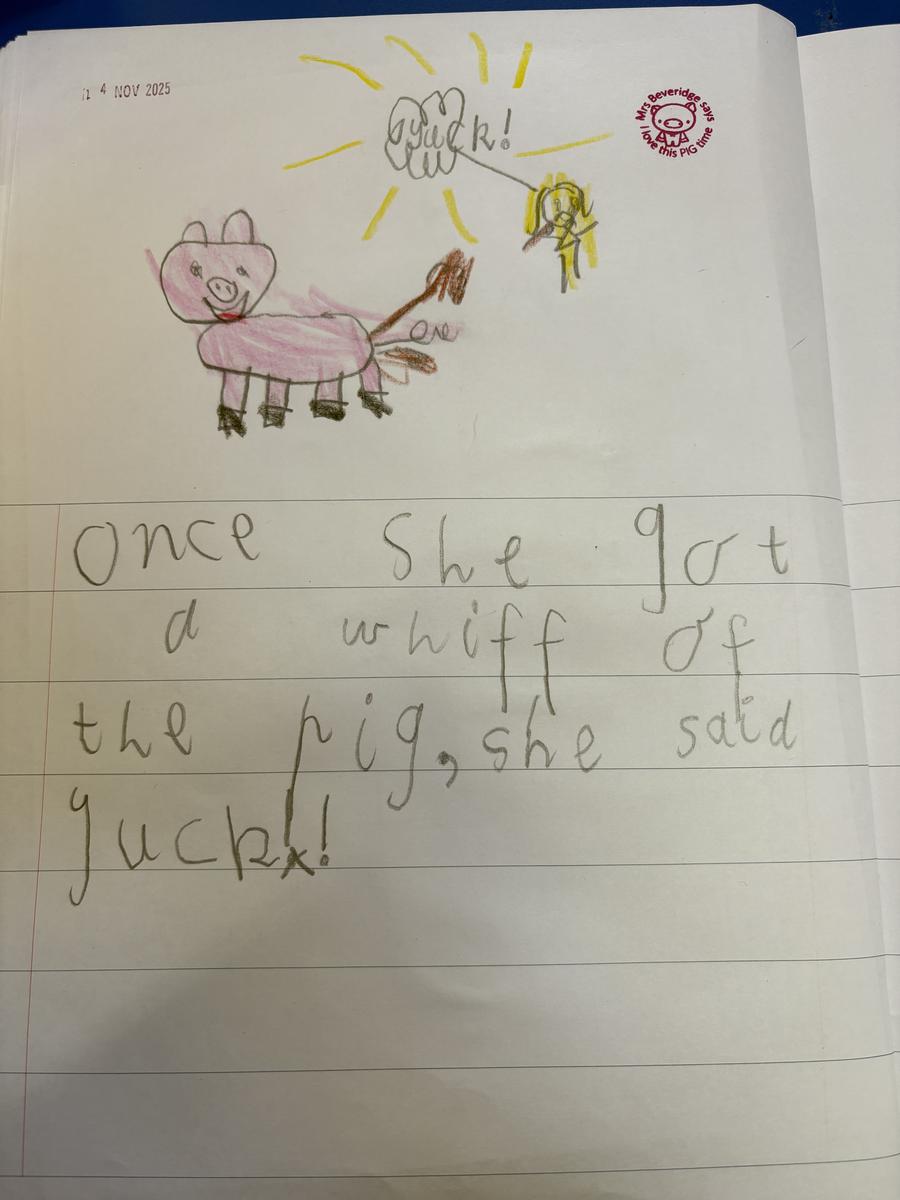 4 NOV 2025
yuck!
Mrs Beveridge says
I love this PIG time
Once she got
a whiff of
the pig, she said
yuck!!